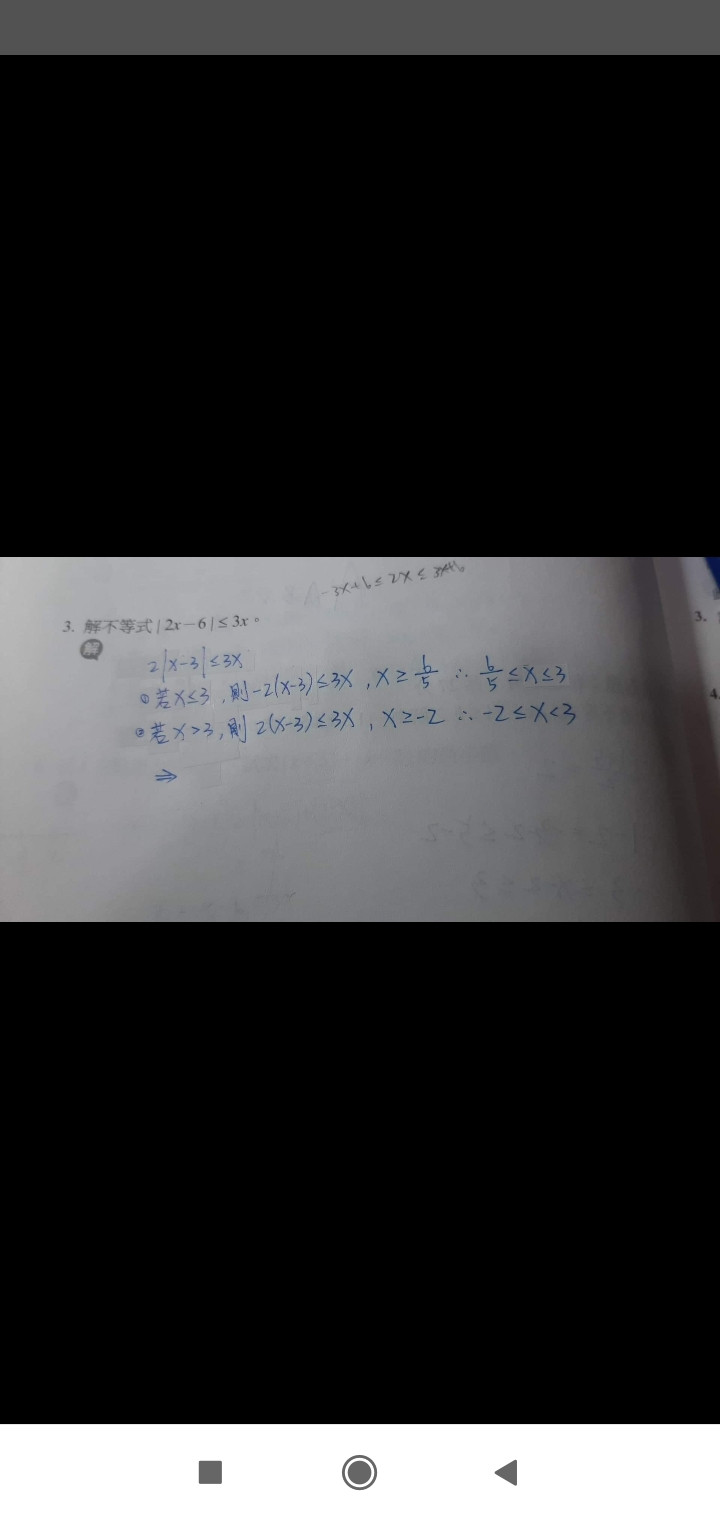 -3x+6 ≤ 2x ≤ 3x+6
3. 解不等式 | 2x－6 | ≤ 3x。
3.
解
4.
2|x-3| ≤ 3x
① 若 x≤3, 則 -2(x-3) ≤ 3x, x ≥ 6/5 ∴ 6/5 ≤ x ≤ 3
② 若 x>3, 則 2(x-3) ≤ 3x, x ≥ -2 ∴ -2 ≤ x < 3
⇒